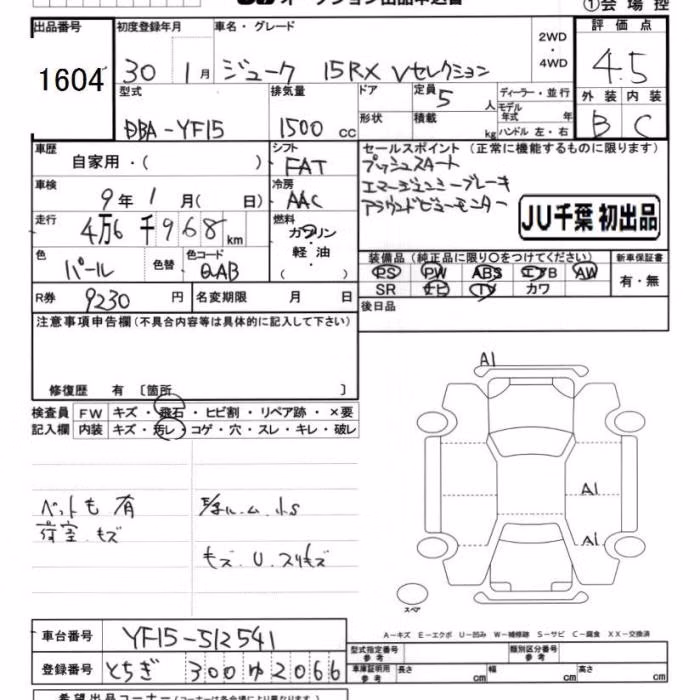 ①会場控
出品番号 初度登録年月 車名・グレード 評価点
1604 30 1月 ジューク 15RX Vセレクション 2WD・4WD 4.5
型式 排気量 ドア 定員 5人 ディーラー・並行 外装 内装
DBA-YF15 1500cc 形状 積載 kg モデル年式 年 ハンドル 左・右 B C
車歴 シフト セールスポイント (正常に機能するものに限ります)
自家用・( ) FAT プッシュスタート
車検 冷房 エマージェンシーブレーキ
9年 1月( 日) AAC アラウンドビューモニター
JU千葉 初出品
走行 燃料
4万6千968km ガソリン
軽・油
( )
色 色替 色コード 装備品 (純正品に限り○をつけてください) 新車保証書
パール QAB PS PW ABS エアB AW 有・無
SR ナビ TV カワ
R券 9230円 名変期限 月 日 後日品
注意事項申告欄(不具合内容等は具体的に記入して下さい)
修復歴 有 〔箇所 〕
検査員 FW キズ・飛石・ヒビ割・リペア跡・×要
記入欄 内装 キズ・汚レ・コゲ・穴・スレ・キレ・破レ
A1
A1
A1
ペット毛 有
荷室.キズ
キズ.U.スリキズ
スペア
A-キズ E-エクボ U-凹み W-補修跡 S-サビ C-腐食 XX-交換済
車台番号 YF15-512541
型式指定番号 参考 類別区分番号 参考
登録番号 とちぎ 300 ゆ 2066
車庫証明用 参考 長さ cm 幅 cm 高さ cm